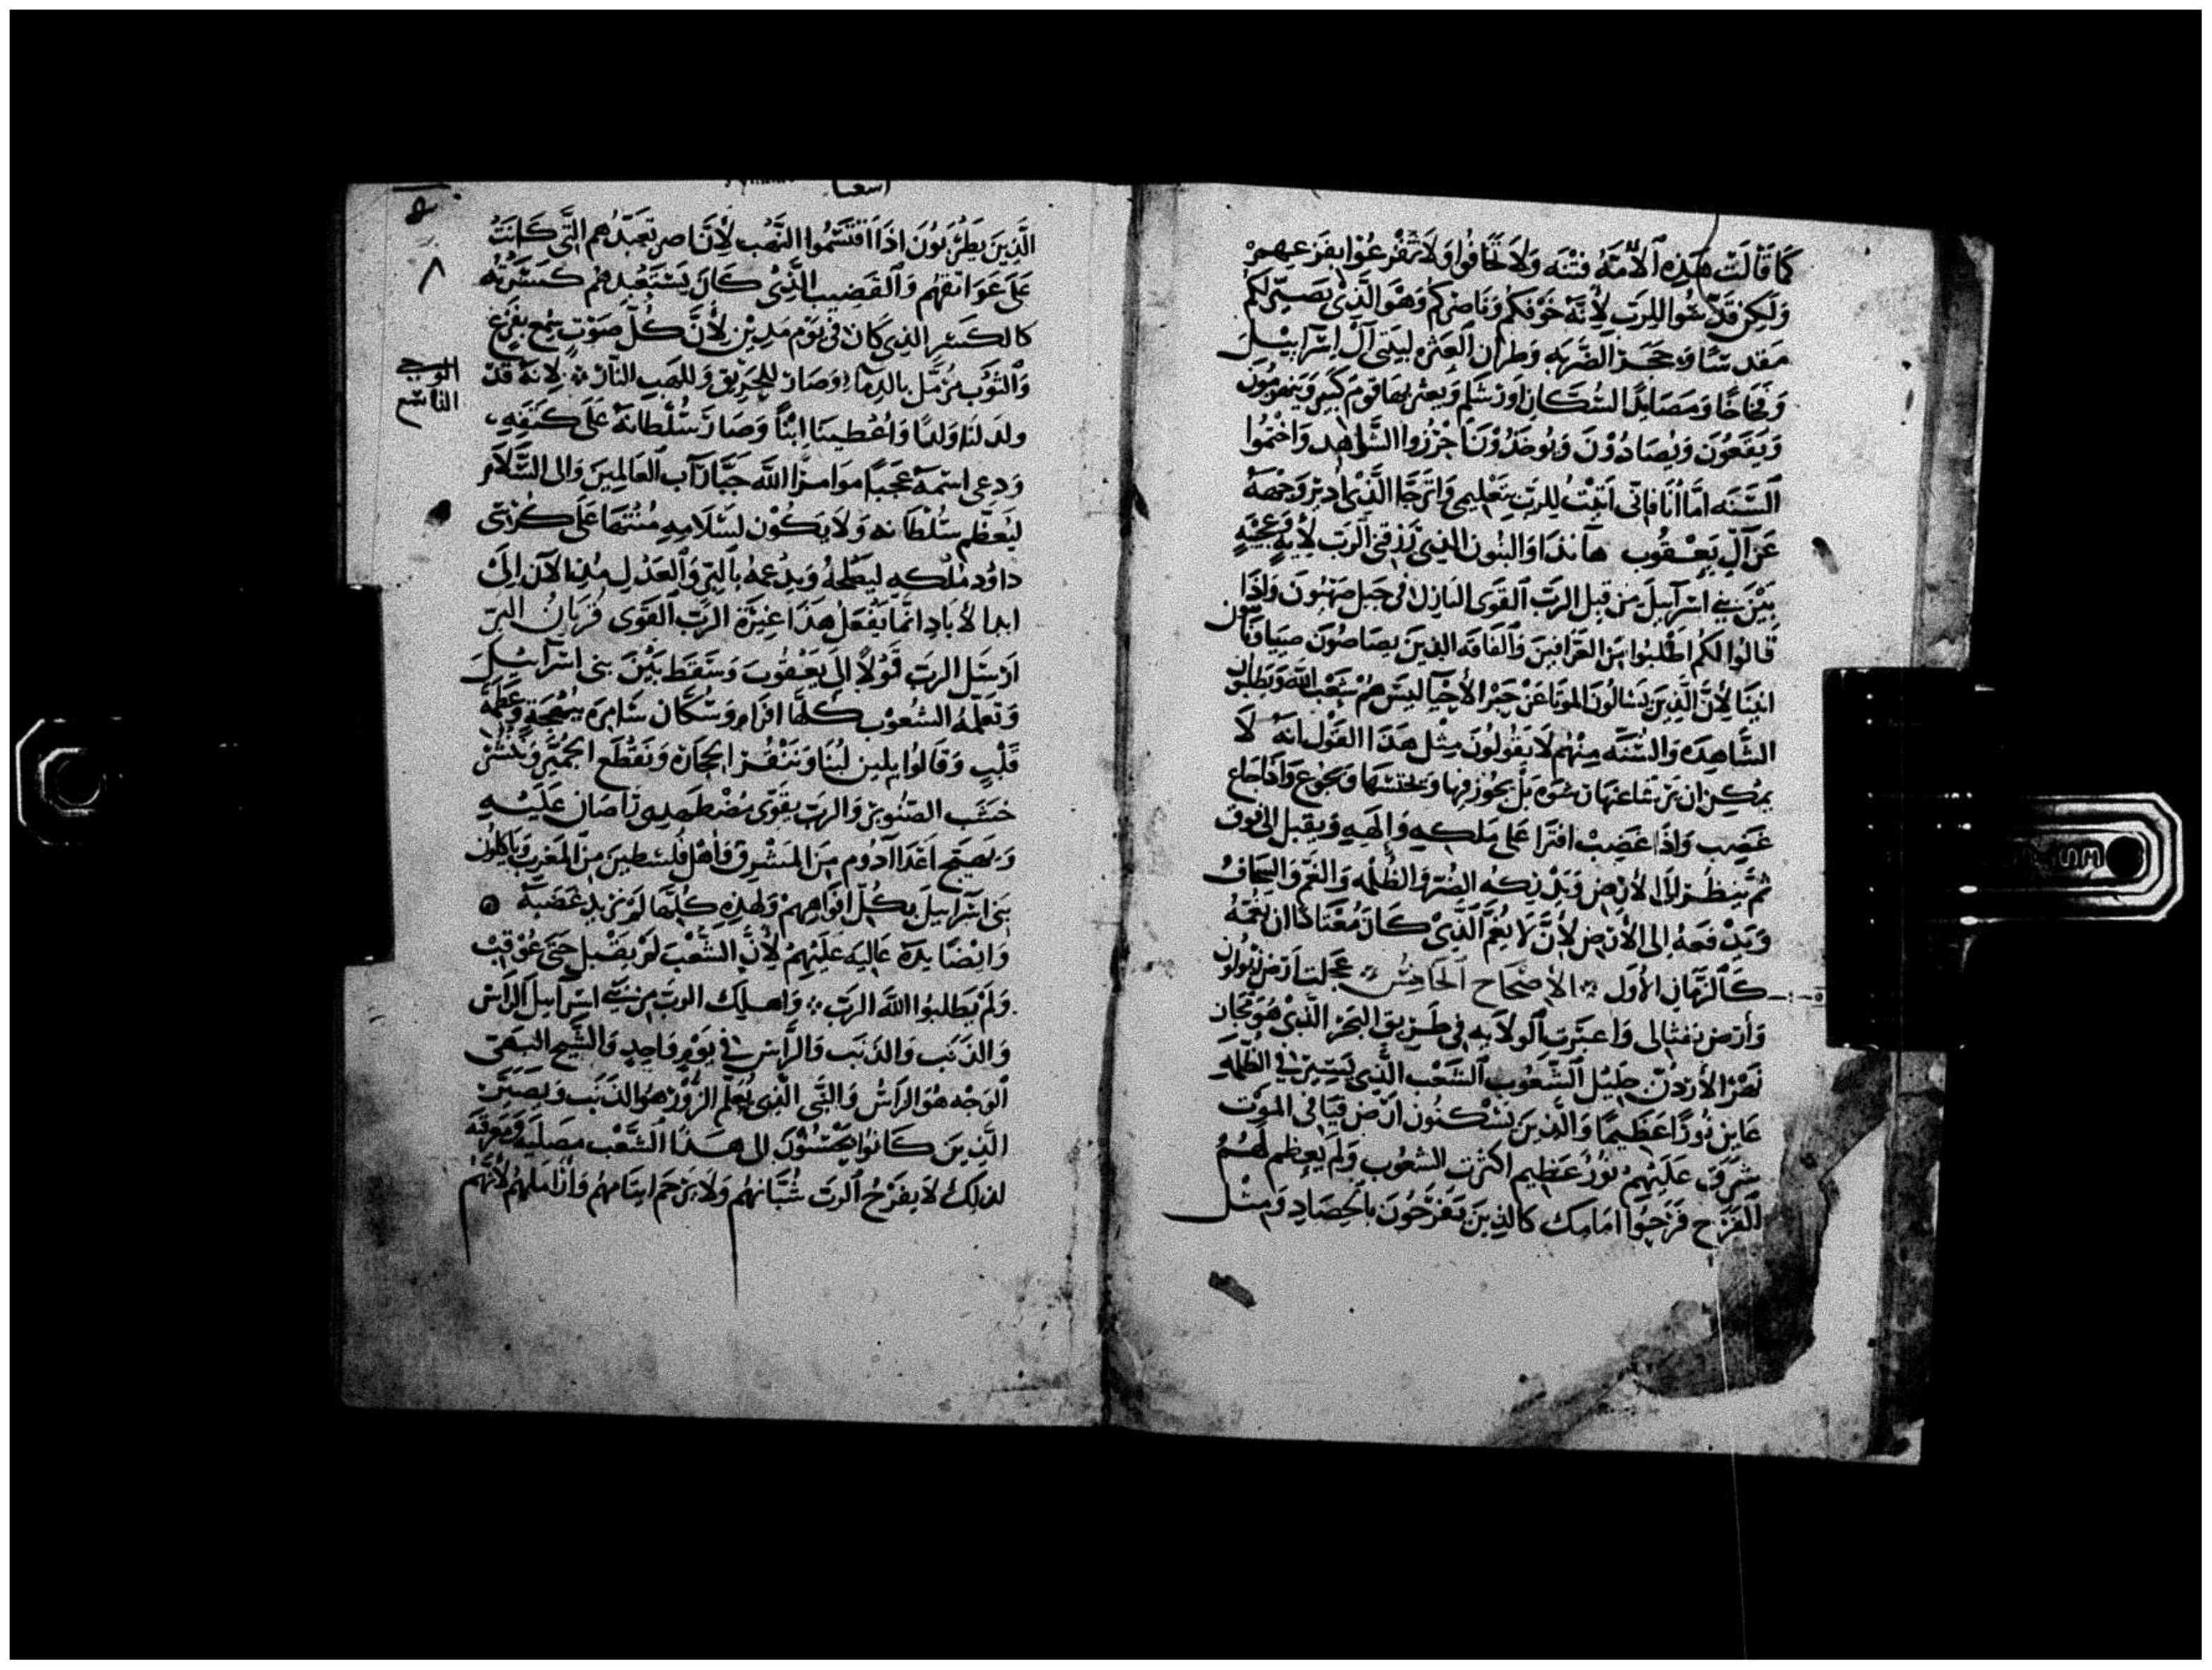 كَمَا قَالَتْ هَذِهِ ٱلأُمَّةُ فتْنَه وَلاَ تخَافُوا وَلاَ تَفْزعُوا بفَزعِهِمْ
وَلَكِن قَدِّسُوا للِرَبِ لأنَهْ خَوْفكُمْ وَنَاصِركُمْ وَهوَ الَّذِى يَصِيْر لَكُم
مَقدسًا وَحَجَر الضَّربَه وَطران العثره لبَيتى آل اِسْرَآييْلَ
وَفخاخًا وَمَصَايدًا السُكَّان اورَشلِم وَيعثر بهَا قوم كَثيْر وَيَنهزمُونَ
وَيَقَعُونَ وَيُصَادُوْنَ وَيُوخَذُوْنَ احْزِزُوا الشَّاهِد وَاخْتمُوا
السُّنَه امَّا انَا فاِنّى للِرَبِ تعْلِيمى وَاترَجَّا الَّذِى اُدِيْر وَجْهَهُ
عَن آلِ يَعْقُوب هآنذَا وَالبنُون الذِى رَزقنى الرَب لأيَةٍ وَعجِيْبَةٍ
بَيْنَ بنِي اسْرَآييلَ مِن قبل الرَبِ القوَى النازِل فى جَبَل صهْيُونَ وَاذَا
قَالوُا لكُم اطْلبُوا مِن العَرَّافِينَ وَالفَاقَه الذِينَ يصَاصُونَ
اتينَا لِأنَّ الَّذِينَ يَسَالُونَ الموتَا عَنْ خَبر الأحْيآ ليسَ همُ شَعْب الله وَيَطلبُون
الشَّاهِدَه وَالسُنَه مِنْهُم لاَ يَقولُونَ مِثْل هَذَا القَوْل انَهُ لاَ
يمُكِن ان بَل يَجُوز فِيهَا وَيجُوع وَاذَا جَاع
غَضِبَ وَاذَا غَضِبْ افتَرَا عَلى مَلكِهِ وَإلهِهِ وَيقبل الى فوق
ثمَ يَنظُر الى الأرْض وَيُدْركهُ الضُر وَالظُلمه وَالغَم وَالعجاف
وَيَدْفعهُ إلى الأرْض لأنَّ لا يغم الَّذِىْ كَانَ مُعْتَادًا ان يغمهُ
كَالزَمَانِ الأوَل ۞ الاِصْحَاح الحَادِيْ ۞ عجلَت اَرْض زبولون
وَأرْض نفثالى وَاعتَزت الولايه فى طَرِيق البَحْر الَّذِىْ هُوَ مجَاز
نَهْر الأرْدن جَلِيْل الشُعُوب الشَعْب الَّذِى يَسِيْر فِى الظُلمَه
عَاين نُورًا عَظِيمًا وَالذِينَ يَسْكنُون ارْض فيافى الموْت
شَرَق عَلَيْهِم نُوْر عَظِيم اكثرت الشعُوب وَلَم يُعظم لهُم
الفَرَح فَرَحوُا امَامك كَالذِينَ يَفْرَحُونَ بالحِصَادِ وَمِثْل
اشعيا
الَّذِينَ يَطْرَبُونَ اذَا اقْتَسَمُوا النَّهْب لأنَّ ناصر تعَبّدُهم الَّتَى كَانَتْ
عَلَى عَوَاتقهُم وَالقَضِيب الَّذِىْ كَانَ يَسْتَعْبدهُم كَسرْتُه
كالكسر الذِى كَان فى يَوْم مَدِيْن لأنَّ كُلّ صَوْتٍ سُمِع بفَزع
وَالثوَب مُرْمَّل بالدِمآ وَصَارَ للِحَرِيْق وَلِلهَبِ النَّار ۞ لاِنَهُ قدْ
الوجى
التاسع
٨
ولدَ لنَا وَلدًا وَاعْطِينَا ابْنًا وَصَارَ سُلْطَانهُ عَلَى كَتفِهِ
وَدعى اسْمَهُ عَجِيبًا موَامرًا اللهَ جبَّارًا آب العَالمِينَ وَالى السَّلام
ليُعَظّم سُلْطَانه وَلاَ يَكُوْن لسَلاَمهِ مُنْتَهَا عَلَى كُرْسى
داوُد مُلْكهِ ليَصْلحهُ وَيدْعمهُ بالبِر وَالعَدْل مُنذ الآن اِلَى
ابد الأبَادِ انمَا يفعَل هَذَا غيْرَة الرَبِّ القَوَى قُربَان البِر
ارْسَل الرَبِ قَوْلاً الَى يَعْقُوبَ وَسَقط بَيْنَ بنى اسْرآييْلَ
وَتعَلّمهُ الشُعُوْب كُلّهَا افرَام وَسُكَّان سَامِرَه ببُهْجَةٍ وَعَظَمَة
قَلْبٍ وَقَالُوا يلين لبنَا وَنَنْقُر الحجَارَة وَنَقْطَع الجُمَّيْز وَننشر
خَشَب الصَنُوْبَر وَالرَبّ يقَوّى مُضْطَهِدِى رَاصَان عَلَيْهِ
وَيهَيج اعْدَا آدُوم مِن المَشْرِق وَاهْل فلَسْطِينَ مِن المَغْرِب وَيَاكلُون
بنى اسْرَآييلَ بكُلّ افوَاهِهِمْ وَلهذِهِ كُلِّهَا لَمْ يرد غَضَبَهُ ۞
وَايْضًا يدهُ عَالِيَه عَلَيْهِم لأنَّ الشَّعْبَ لَمْ يقْبل حَتى عُوْقِب
وَلَمْ يَطلبُوا اللهَ الرَبّ ۞ وَاهلِك الرَب مِن بني اسْرَآييل الرَاس
وَالذَنَب وَالذَنَب وَالرَّاس فِي يَوْمٍ وَاحِدٍ وَالشَّيْخ البَهى
الوَجْه هوَ الرَاسُ وَالنَّبى الَّذِى يُعَلم الزُوْر هوَ الذَنَب وَيَصيْر
الَّذِينَ كَانوُا الى هَذَا الشَّعْب مضَلِيْه وَمغرقَه
لذلِكَ لاَ يفْرَحُ الرَب شُبَّانهُم وَلاَ يَرْحَم ايتَامهُم وَأرَاملهُم لأنّهُم